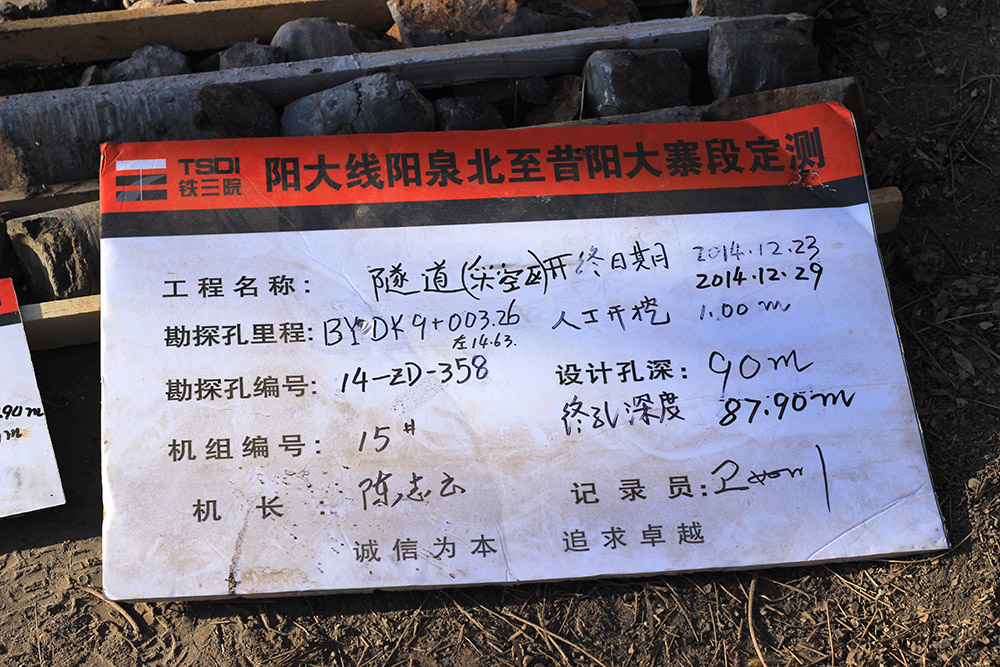 TSDI
铁三院
阳大线阳泉北至昔阳大寨段定测
工程名称: 隧道(采空区) 开终日期 2014.12.23
2014.12.29
勘探孔里程: BYDK9+003.26 人工开挖 1.00m
左14.63.
勘探孔编号: 14-ZD-358 设计孔深: 90m
终孔深度 87.90m
机组编号: 15#
机长: 陈志云 记录员:
诚信为本 追求卓越
.90m
m